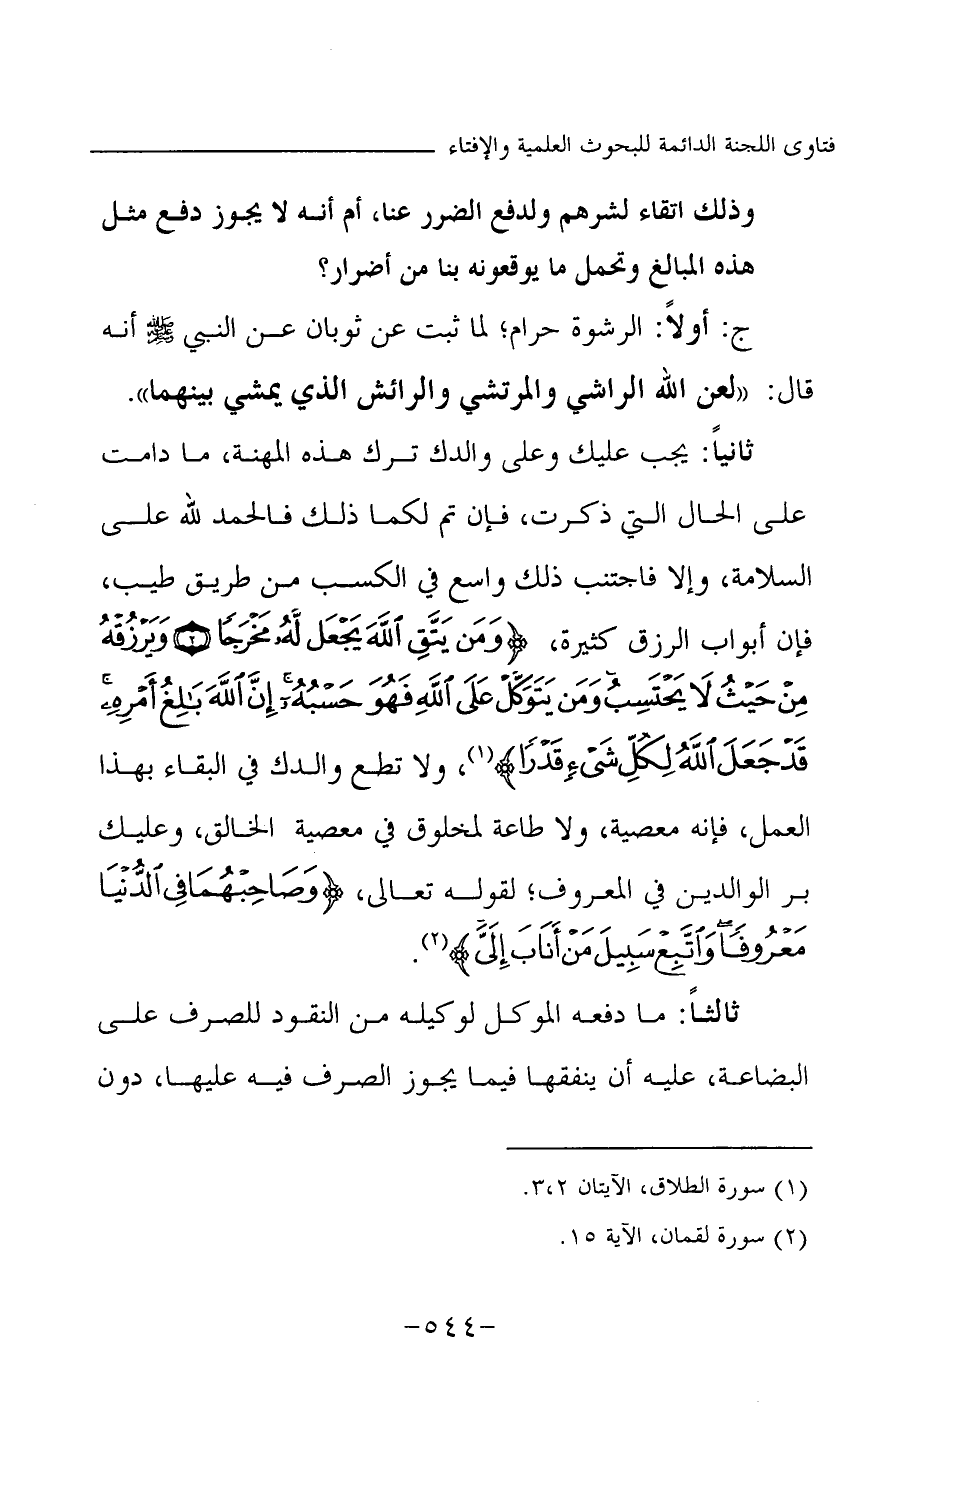 فتاوى اللجنة الدائمة للبحوث العلمية والإفتاء
وذلك اتقاء لشرهم ولدفع الضرر عنا، أم أنه لا يجوز دفع مثل
هذه المبالغ وتحمل ما يوقعونه بنا من أضرار؟
ج: أولاً: الرشوة حرام؛ لما ثبت عن ثوبان عن النبي ﷺ أنه
قال: «لعن الله الراشي والمرتشي والرائش الذي يمشي بينهما».
ثانياً: يجب عليك وعلى والدك ترك هذه المهنة، ما دامت
على الحال التي ذكرت، فإن تم لكما ذلك فالحمد لله على
السلامة، وإلا فاجتنب ذلك واسع في الكسب من طريق طيب،
فإن أبواب الرزق كثيرة، ﴿وَمَن يَتَّقِ ٱللَّهَ يَجْعَل لَّهُۥ مَخْرَجًا ٢ وَيَرْزُقْهُ
مِنْ حَيْثُ لَا يَحْتَسِبُ وَمَن يَتَوَكَّلْ عَلَى ٱللَّهِ فَهُوَ حَسْبُهُۥٓ إِنَّ ٱللَّهَ بَٰلِغُ أَمْرِهِۦ
قَدْ جَعَلَ ٱللَّهُ لِكُلِّ شَىْءٍ قَدْرًا﴾(١)، ولا تطع والدك في البقاء بهذا
العمل، فإنه معصية، ولا طاعة لمخلوق في معصية الخالق، وعليك
بر الوالدين في المعروف؛ لقوله تعالى، ﴿وَصَاحِبْهُمَا فِى ٱلدُّنْيَا
مَعْرُوفًا وَٱتَّبِعْ سَبِيلَ مَنْ أَنَابَ إِلَىَّ﴾(٢).
ثالثاً: ما دفعه الموكل لوكيله من النقود للصرف على
البضاعة، عليه أن ينفقها فيما يجوز الصرف فيه عليها، دون
(١) سورة الطلاق، الآيتان ٣،٢.
(٢) سورة لقمان، الآية ١٥.
-٥٤٤-